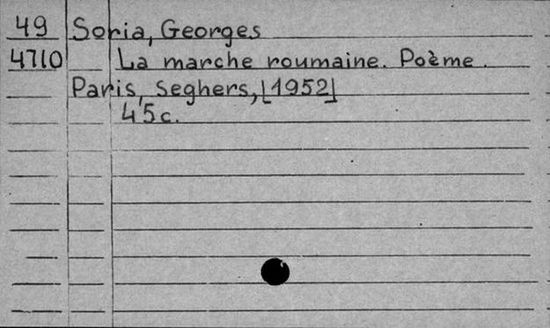 49 Soria, Georges
4710 La marche roumaine. Poème.
Paris, Seghers, [1952]
45 c.